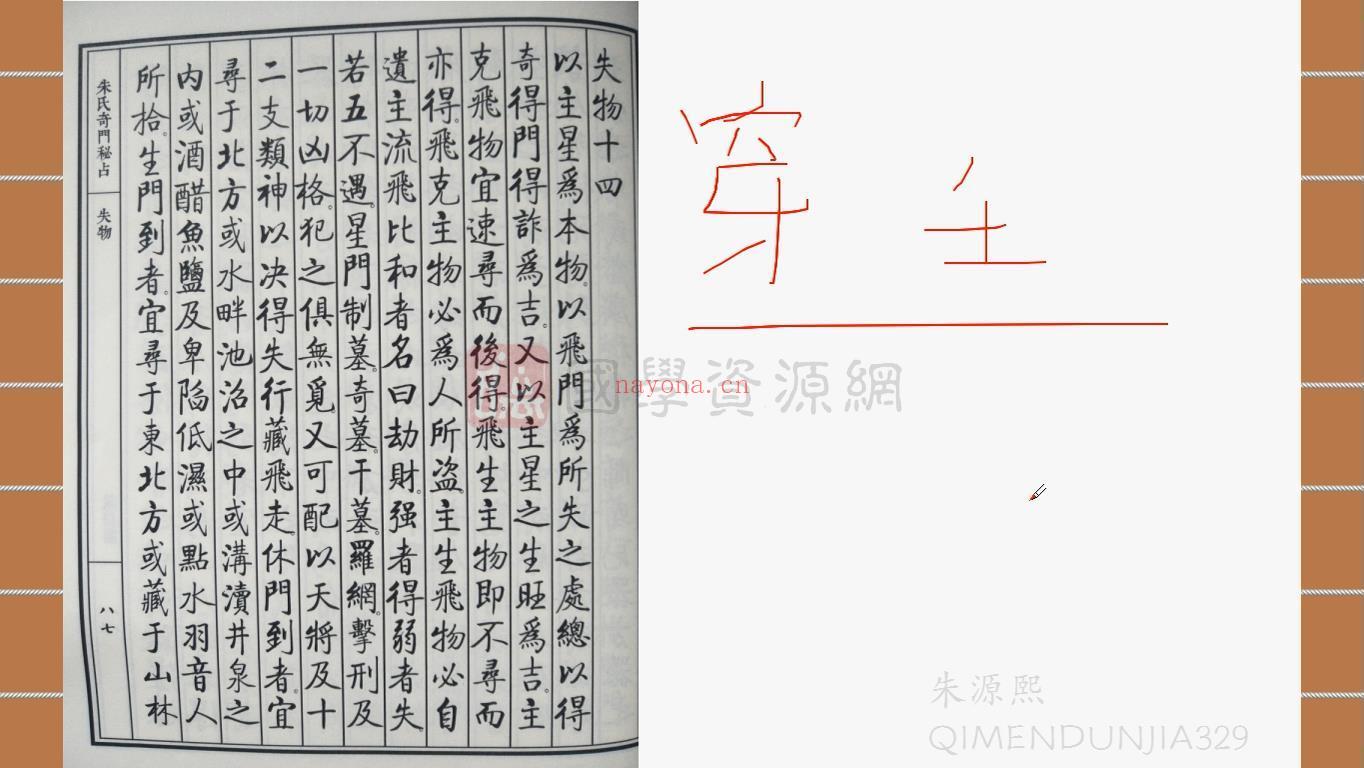 失物十四
以主星爲本物以飛門爲所失之處總以得
奇得門得詐爲吉又以主星之生旺爲吉主
克飛物宜速尋而後得飛生主物即不尋而
亦得飛克主物必爲人所盗主生飛物必自
遺主流飛比和者名曰劫財强者得弱者失
若五不遇星門制墓奇墓干墓羅網擊刑及
一切凶格犯之俱無覓又可配以天將及十
二支類神以决得失行藏飛走休門到者宜
尋于北方或水畔池沼之中或溝瀆井泉之
内或酒醋魚鹽及卑陷低濕或點水羽音人
所拾生門到者宜尋于東北方或藏于山林
朱氏奇門秘占 失物
八七
穿 土
國學資源網
nayona.cn
朱源熙
QIMENDUNJIA329